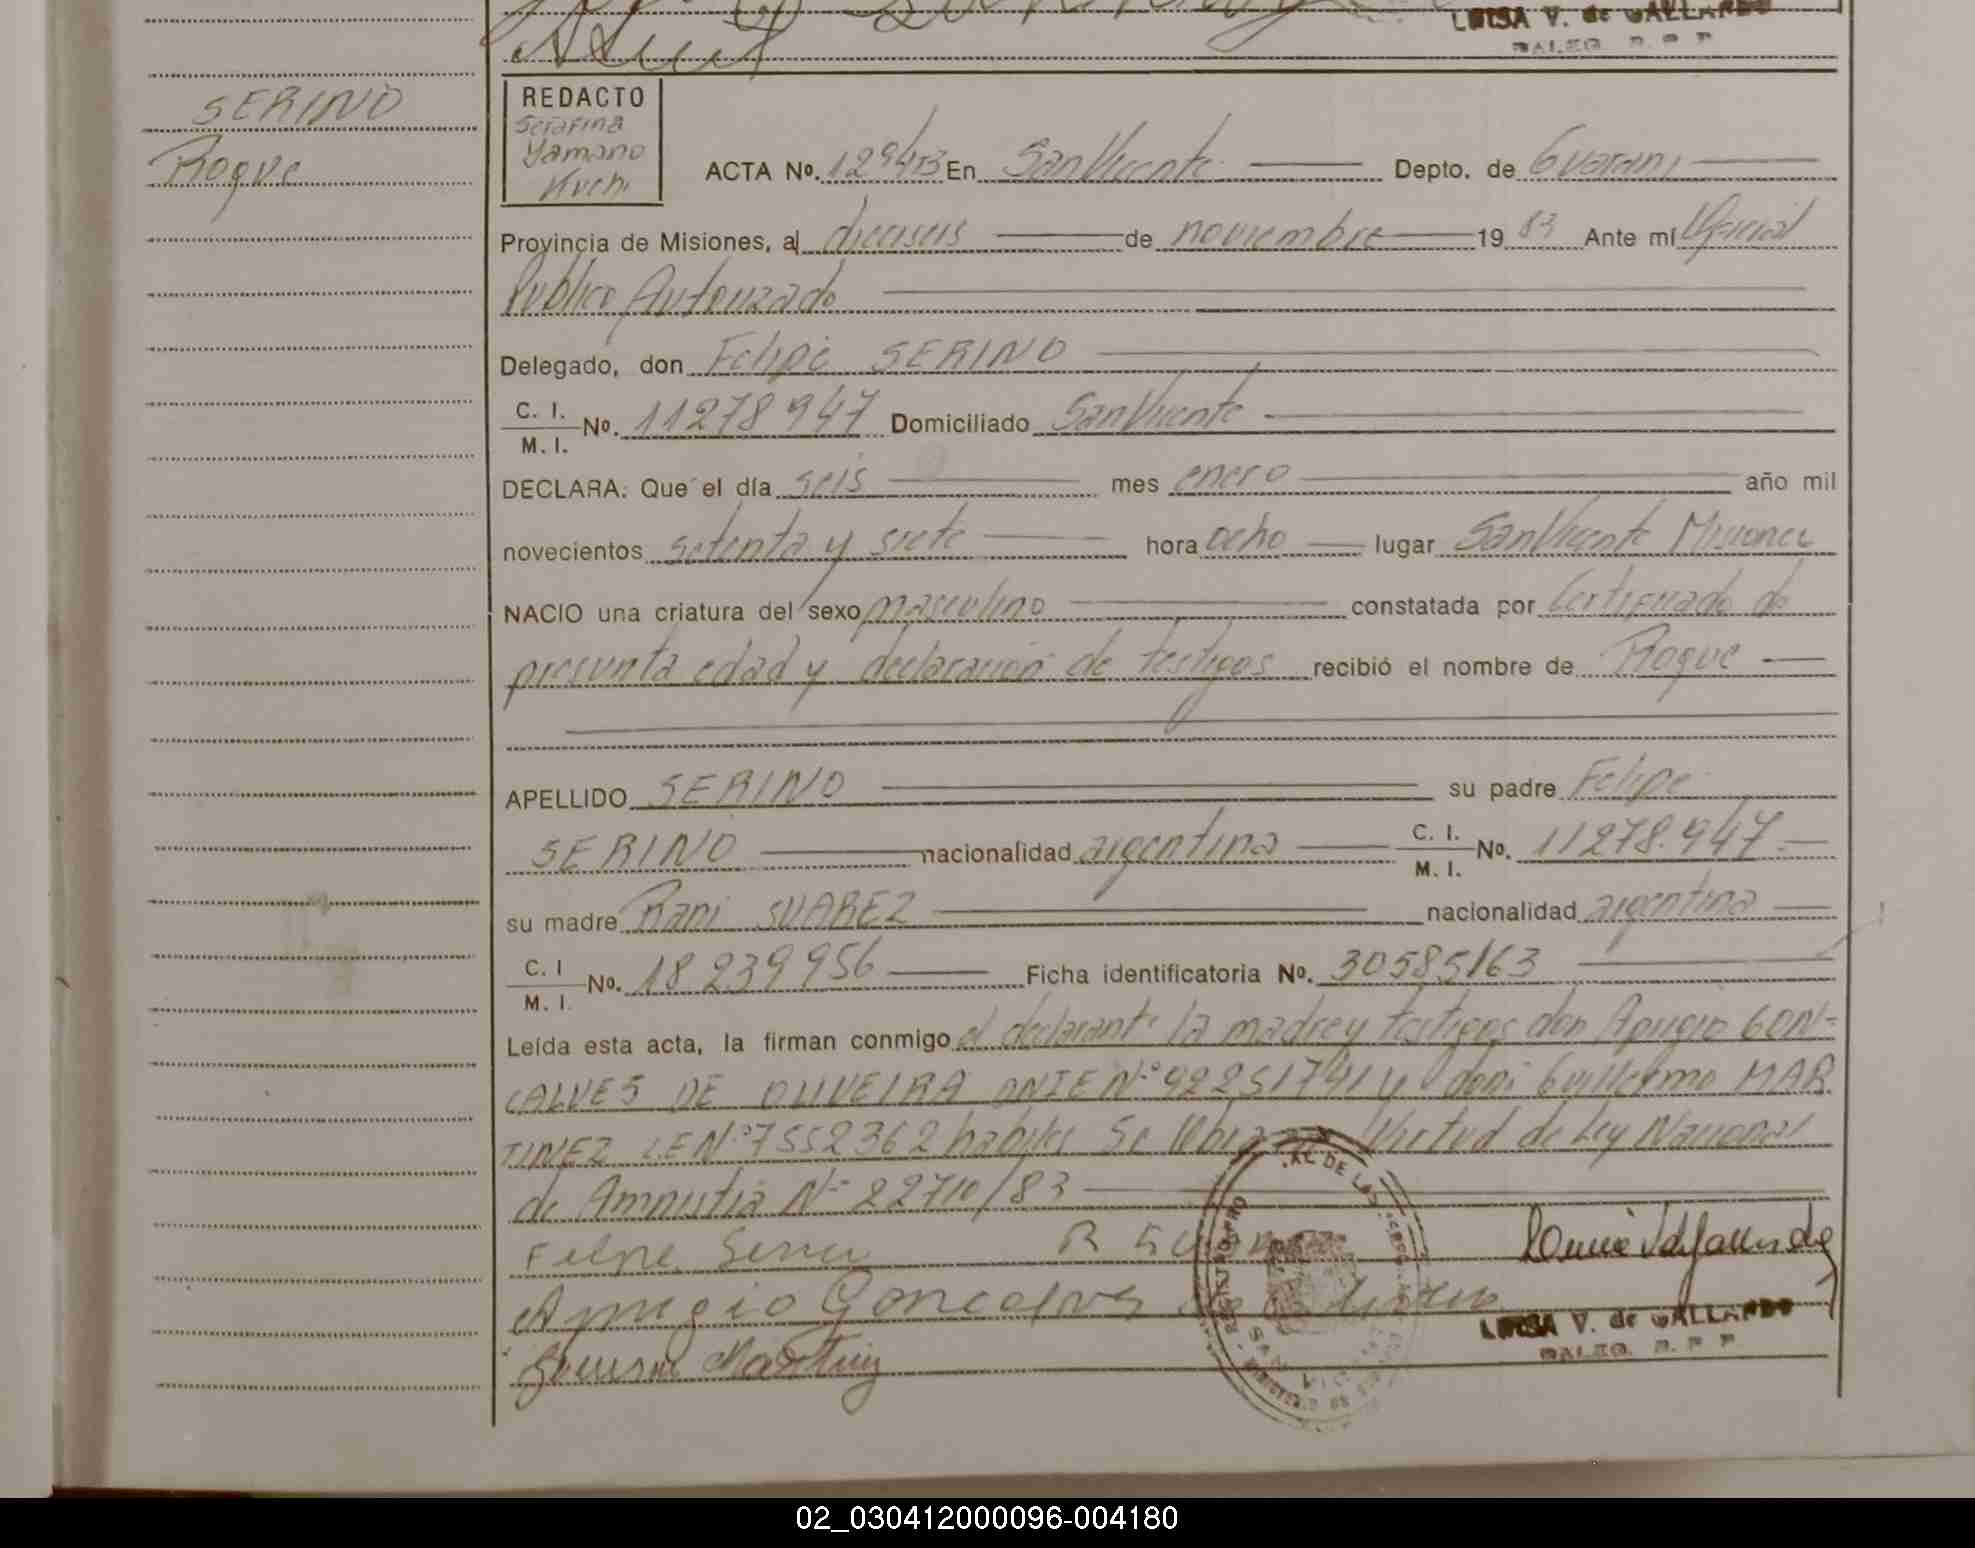 LUISA V. de GALLARDO
SERINO
Roque
REDACTO
Serafina
Yamano
Kuchi
ACTA Nº. En San Vicente Depto. de Guarani
Provincia de Misiones, al dieciseis de noviembre 1983 Ante mí Oficial
Publico Autorizado
Delegado, don Felipe SERINO
C. I.
M. I. Nº. 11278947 Domiciliado San Vicente
DECLARA: Que el día seis mes enero año mil
novecientos setenta y siete hora ocho lugar San Vicente Misiones
NACIO una criatura del sexo masculino constatada por Certificado de
presunta edad y declaración de testigos recibió el nombre de Roque
APELLIDO SERINO su padre Felipe
SERINO nacionalidad argentina C. I.
M. I. Nº. 11278.947
su madre Rani SUAREZ nacionalidad argentina
C. I
M. I. Nº. 18239956 Ficha identificatoria Nº. 30585163
Leída esta acta, la firman conmigo el declarante la madre y testigos don Apugio GON-
CALVES DE OLIVEIRA DNIE Nº 92251741 y don Guillermo MAR
TINEZ LE Nº 7552362 habiles Se labra Virtud de Ley Nacional
de Amnistia Nº 22710/83
Felipe
Apugio Goncalves
LUISA V. de GALLARDO
02_030412000096-004180